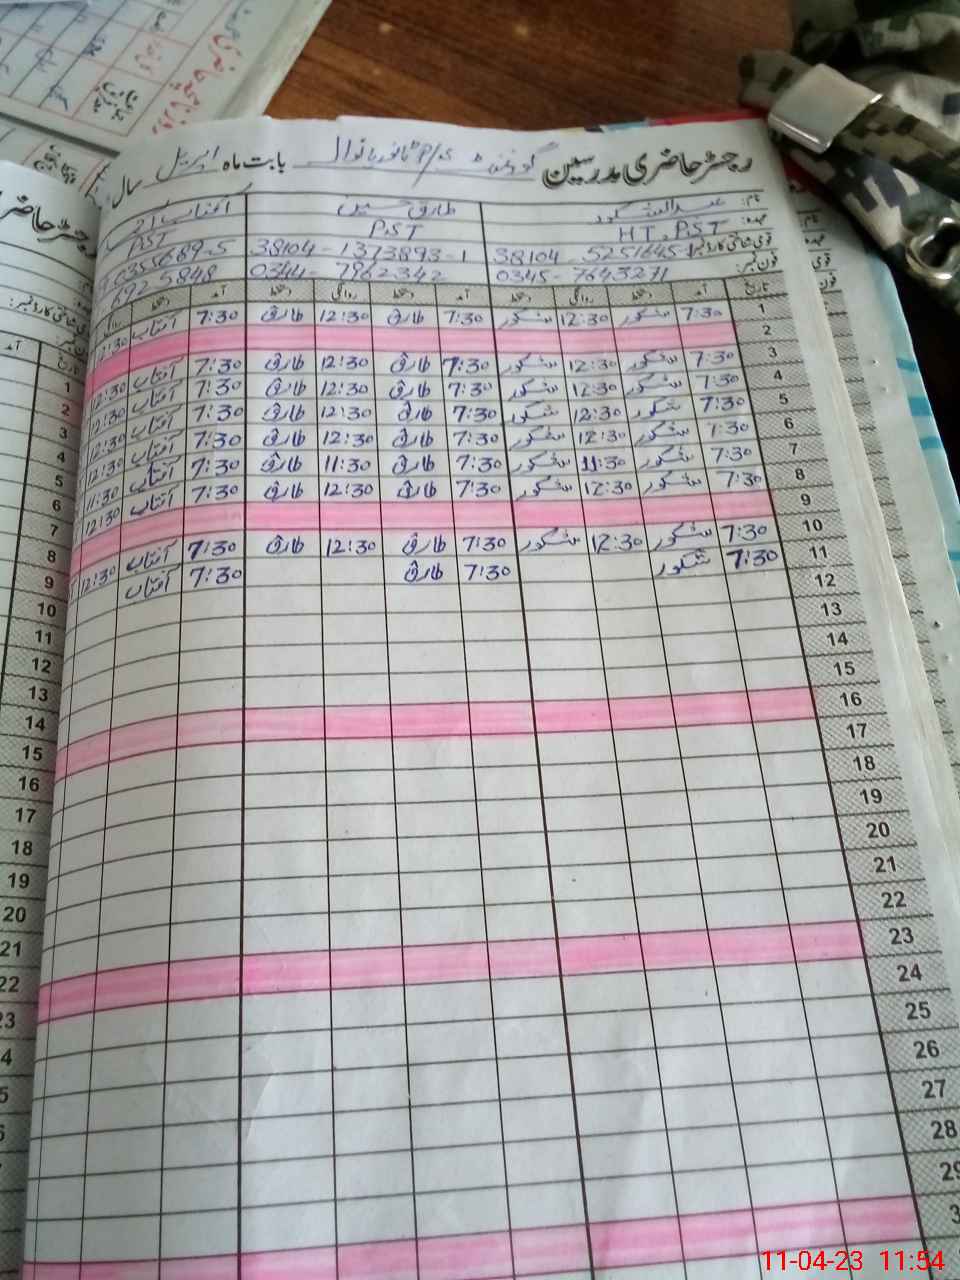 رجسٹر حاضری مدرسین گورنمنٹ P/S بابت ماہ اپریل سال
نام: عبدالشکور طارق حسین آفتاب
عہدہ: HT. PST PST PST
قومی شناختی کارڈ نمبر: 38104-5251645- 38104-1373893-1 0355689-5
فون نمبر: 0345-7643271 0344-7962342 6925848
تاریخ آمد دستخط روانگی دستخط آمد دستخط روانگی دستخط آمد دستخط روانگی
1 7:30 شکور 12:30 شکور 7:30 طارق 12:30 طارق 7:30 آفتاب 12:30
2
3 7:30 شکور 12:30 شکور 7:30 طارق 12:30 طارق 7:30 آفتاب 12:30
4 7:30 شکور 12:30 شکور 7:30 طارق 12:30 طارق 7:30 آفتاب 12:30
5 7:30 شکور 12:30 شکور 7:30 طارق 12:30 طارق 7:30 آفتاب 12:30
6 7:30 شکور 12:30 شکور 7:30 طارق 12:30 طارق 7:30 آفتاب 12:30
7 7:30 شکور 11:30 شکور 7:30 طارق 11:30 طارق 7:30 آفتاب 11:30
8 7:30 شکور 12:30 شکور 7:30 طارق 12:30 طارق 7:30 آفتاب 12:30
9
10 7:30 شکور 12:30 شکور 7:30 طارق 12:30 طارق 7:30 آفتاب 12:30
11 7:30 شکور 7:30 طارق 7:30 آفتاب
12
13
14
15
16
17
18
19
20
21
22
23
24
25
26
27
28
29
رجسٹر حاضر
تاریخ
آمد
1
2
3
4
5
6
7
8
9
10
11
12
13
14
15
16
17
18
19
20
21
22
23
11-04-23 11:54